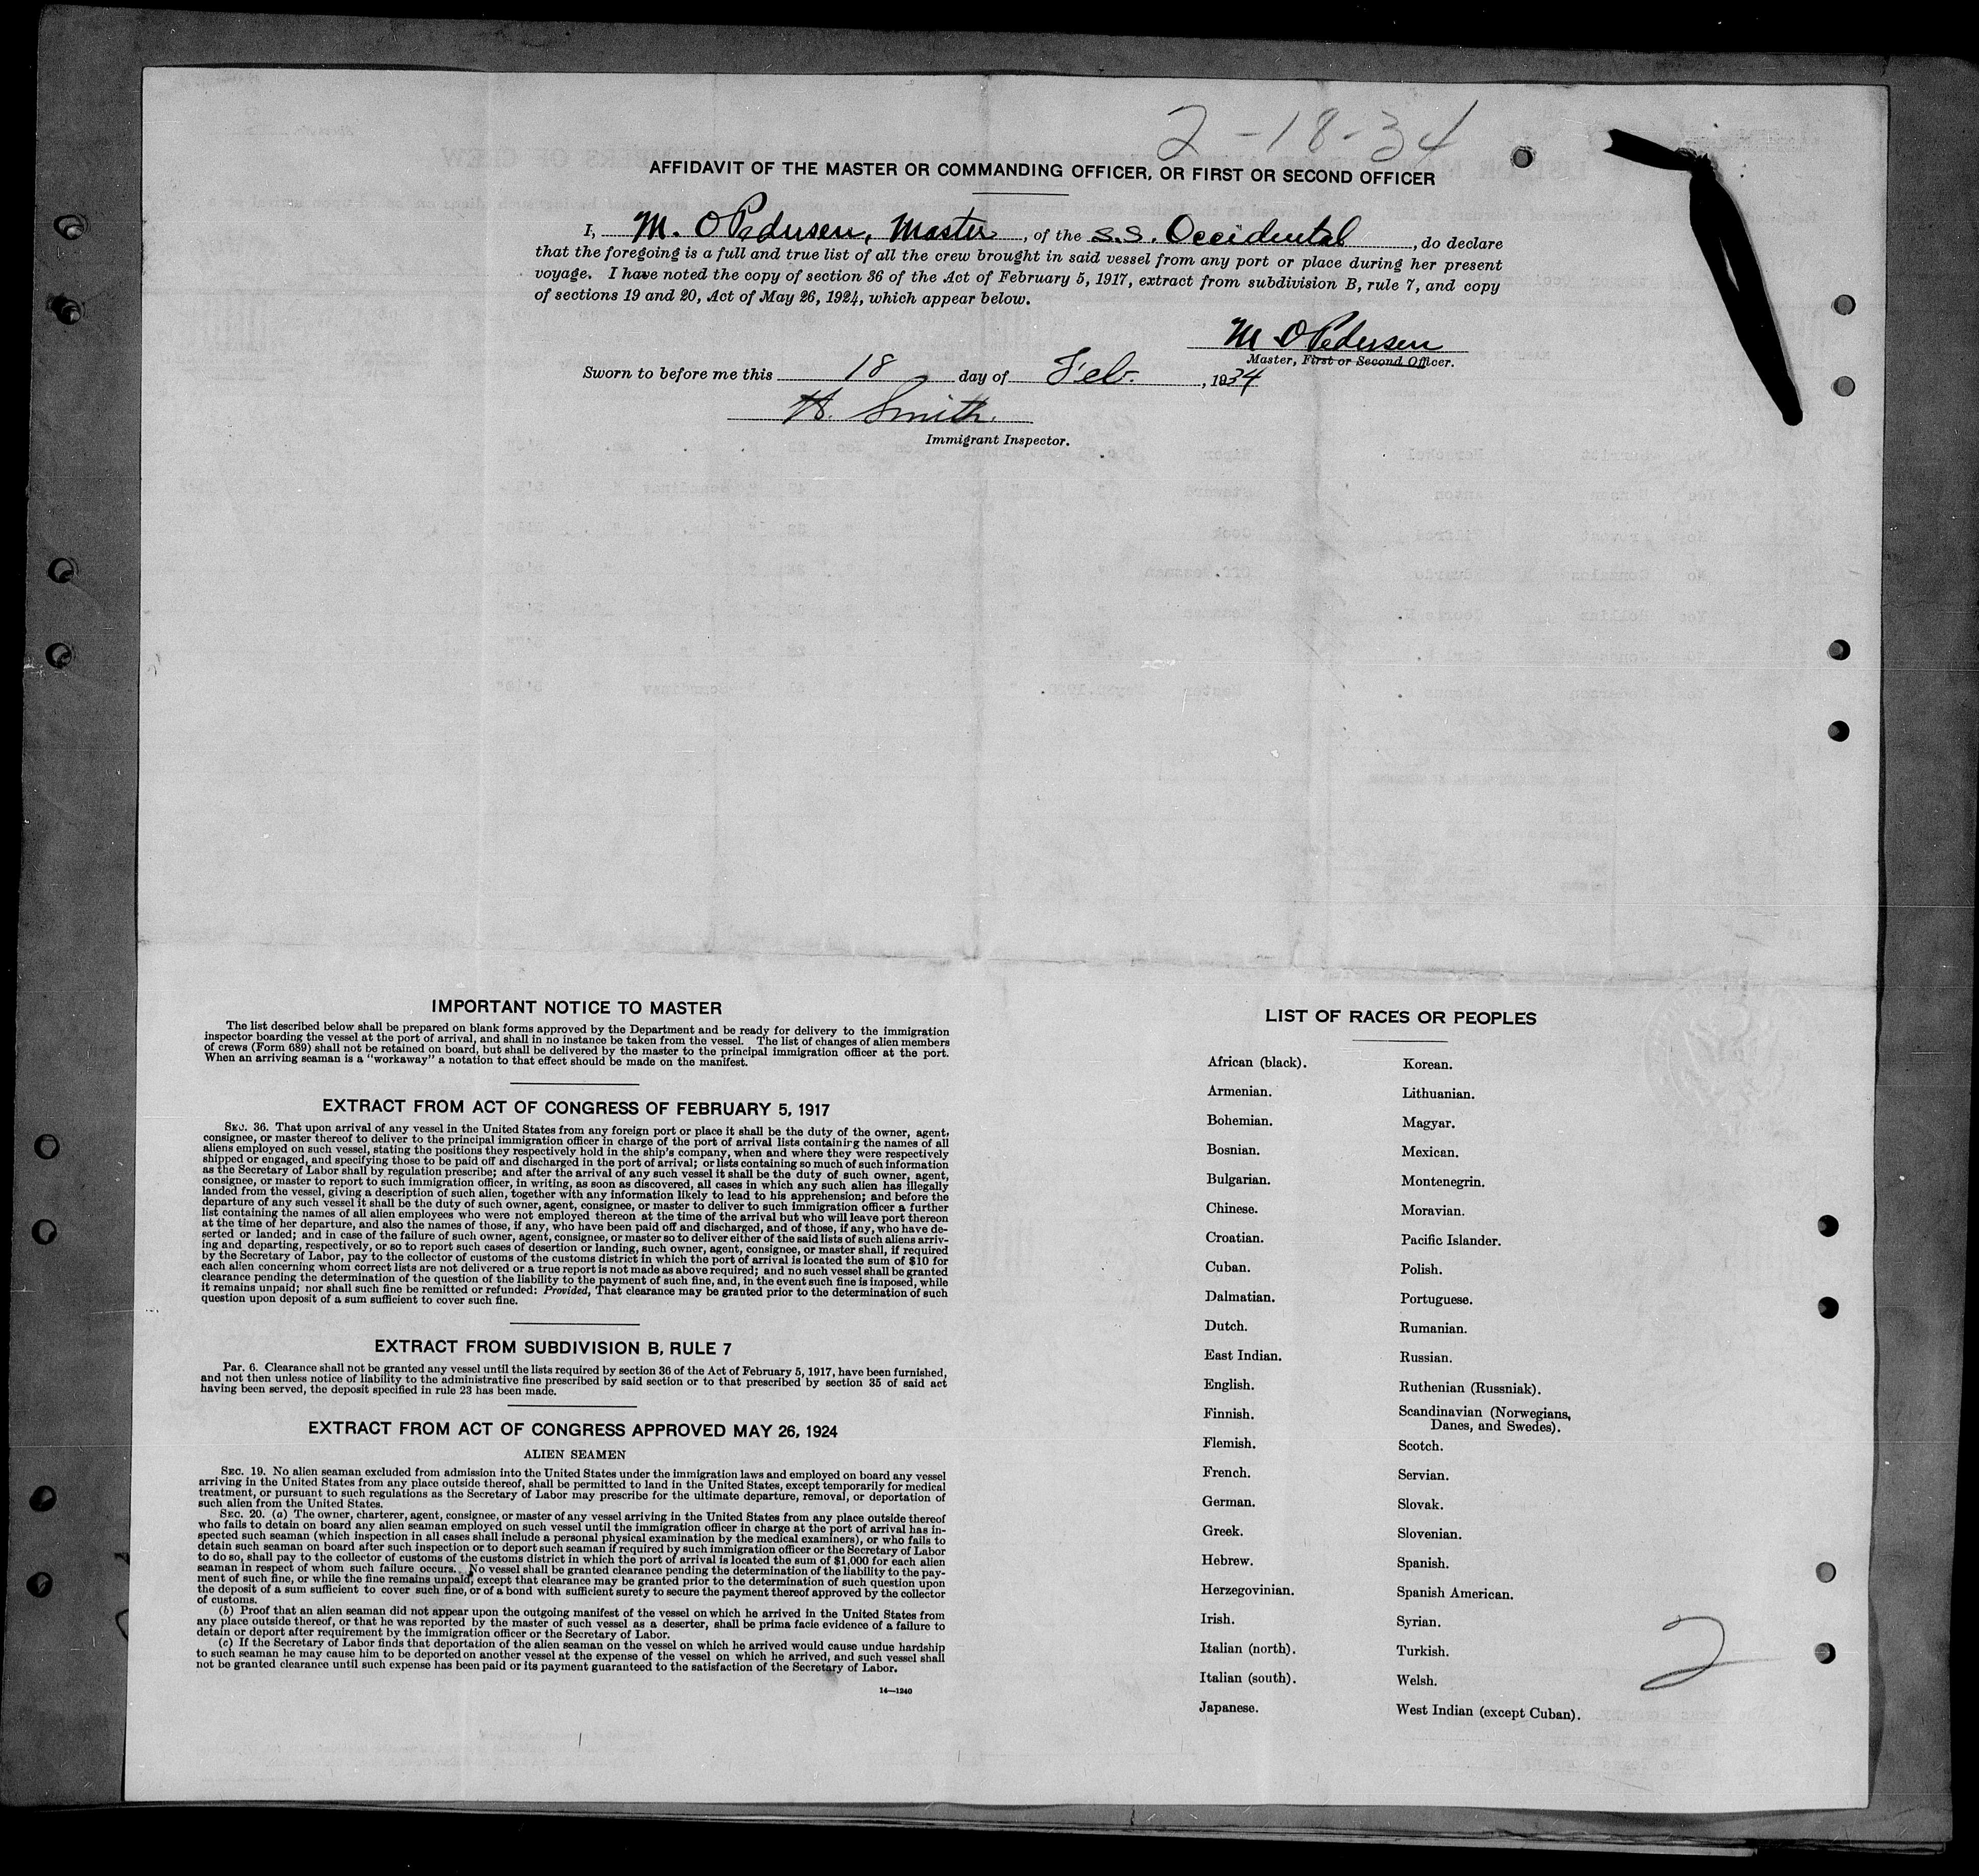 2-18-34
AFFIDAVIT OF THE MASTER OR COMMANDING OFFICER, OR FIRST OR SECOND OFFICER
I, M. O Pedersen, Master, of the S.S. Occidental, do declare
that the foregoing is a full and true list of all the crew brought in said vessel from any port or place during her present
voyage. I have noted the copy of section 36 of the Act of February 5, 1917, extract from subdivision B, rule 7, and copy
of sections 19 and 20, Act of May 26, 1924, which appear below.
M O Pedersen
Master, First or Second Officer.
Sworn to before me this 18 day of Feb. , 1934
H. Smith.
Immigrant Inspector.
IMPORTANT NOTICE TO MASTER
The list described below shall be prepared on blank forms approved by the Department and be ready for delivery to the immigration
inspector boarding the vessel at the port of arrival, and shall in no instance be taken from the vessel. The list of changes of alien members
of crews (Form 689) shall not be retained on board, but shall be delivered by the master to the principal immigration officer at the port.
When an arriving seaman is a "workaway" a notation to that effect should be made on the manifest.
EXTRACT FROM ACT OF CONGRESS OF FEBRUARY 5, 1917
SEC. 36. That upon arrival of any vessel in the United States from any foreign port or place it shall be the duty of the owner, agent,
consignee, or master thereof to deliver to the principal immigration officer in charge of the port of arrival lists containing the names of all
aliens employed on such vessel, stating the positions they respectively hold in the ship's company, when and where they were respectively
shipped or engaged, and specifying those to be paid off and discharged in the port of arrival; or lists containing so much of such information
as the Secretary of Labor shall by regulation prescribe; and after the arrival of any such vessel it shall be the duty of such owner, agent,
consignee, or master to report to such immigration officer, in writing, as soon as discovered, all cases in which any such alien has illegally
landed from the vessel, giving a description of such alien, together with any information likely to lead to his apprehension; and before the
departure of any such vessel it shall be the duty of such owner, agent, consignee, or master to deliver to such immigration officer a further
list containing the names of all alien employees who were not employed thereon at the time of the arrival but who will leave port thereon
at the time of her departure, and also the names of those, if any, who have been paid off and discharged, and of those, if any, who have de-
serted or landed; and in case of the failure of such owner, agent, consignee, or master so to deliver either of the said lists of such aliens arriv-
ing and departing, respectively, or so to report such cases of desertion or landing, such owner, agent, consignee, or master shall, if required
by the Secretary of Labor, pay to the collector of customs of the customs district in which the port of arrival is located the sum of $10 for
each alien concerning whom correct lists are not delivered or a true report is not made as above required; and no such vessel shall be granted
clearance pending the determination of the question of the liability to the payment of such fine, and, in the event such fine is imposed, while
it remains unpaid; nor shall such fine be remitted or refunded: Provided, That clearance may be granted prior to the determination of such
question upon deposit of a sum sufficient to cover such fine.
EXTRACT FROM SUBDIVISION B, RULE 7
Par. 6. Clearance shall not be granted any vessel until the lists required by section 36 of the Act of February 5, 1917, have been furnished,
and not then unless notice of liability to the administrative fine prescribed by said section or to that prescribed by section 35 of said act
having been served, the deposit specified in rule 23 has been made.
EXTRACT FROM ACT OF CONGRESS APPROVED MAY 26, 1924
ALIEN SEAMEN
SEC. 19. No alien seaman excluded from admission into the United States under the immigration laws and employed on board any vessel
arriving in the United States from any place outside thereof, shall be permitted to land in the United States, except temporarily for medical
treatment, or pursuant to such regulations as the Secretary of Labor may prescribe for the ultimate departure, removal, or deportation of
such alien from the United States.
SEC. 20. (a) The owner, charterer, agent, consignee, or master of any vessel arriving in the United States from any place outside thereof
who fails to detain on board any alien seaman employed on such vessel until the immigration officer in charge at the port of arrival has in-
spected such seaman (which inspection in all cases shall include a personal physical examination by the medical examiners), or who fails to
detain such seaman on board after such inspection or to deport such seaman if required by such immigration officer or the Secretary of Labor
to do so, shall pay to the collector of customs of the customs district in which the port of arrival is located the sum of $1,000 for each alien
seaman in respect of whom such failure occurs. No vessel shall be granted clearance pending the determination of the liability to the pay-
ment of such fine, or while the fine remains unpaid, except that clearance may be granted prior to the determination of such question upon
the deposit of a sum sufficient to cover such fine, or of a bond with sufficient surety to secure the payment thereof approved by the collector
of customs.
(b) Proof that an alien seaman did not appear upon the outgoing manifest of the vessel on which he arrived in the United States from
any place outside thereof, or that he was reported by the master of such vessel as a deserter, shall be prima facie evidence of a failure to
detain or deport after requirement by the immigration officer or the Secretary of Labor.
(c) If the Secretary of Labor finds that deportation of the alien seaman on the vessel on which he arrived would cause undue hardship
to such seaman he may cause him to be deported on another vessel at the expense of the vessel on which he arrived, and such vessel shall
not be granted clearance until such expense has been paid or its payment guaranteed to the satisfaction of the Secretary of Labor.
14—1240
LIST OF RACES OR PEOPLES
African (black).
Armenian.
Bohemian.
Bosnian.
Bulgarian.
Chinese.
Croatian.
Cuban.
Dalmatian.
Dutch.
East Indian.
English.
Finnish.
Flemish.
French.
German.
Greek.
Hebrew.
Herzegovinian.
Irish.
Italian (north).
Italian (south).
Japanese.
Korean.
Lithuanian.
Magyar.
Mexican.
Montenegrin.
Moravian.
Pacific Islander.
Polish.
Portuguese.
Rumanian.
Russian.
Ruthenian (Russniak).
Scandinavian (Norwegians,
Danes, and Swedes).
Scotch.
Servian.
Slovak.
Slovenian.
Spanish.
Spanish American.
Syrian.
Turkish.
Welsh.
West Indian (except Cuban).
2